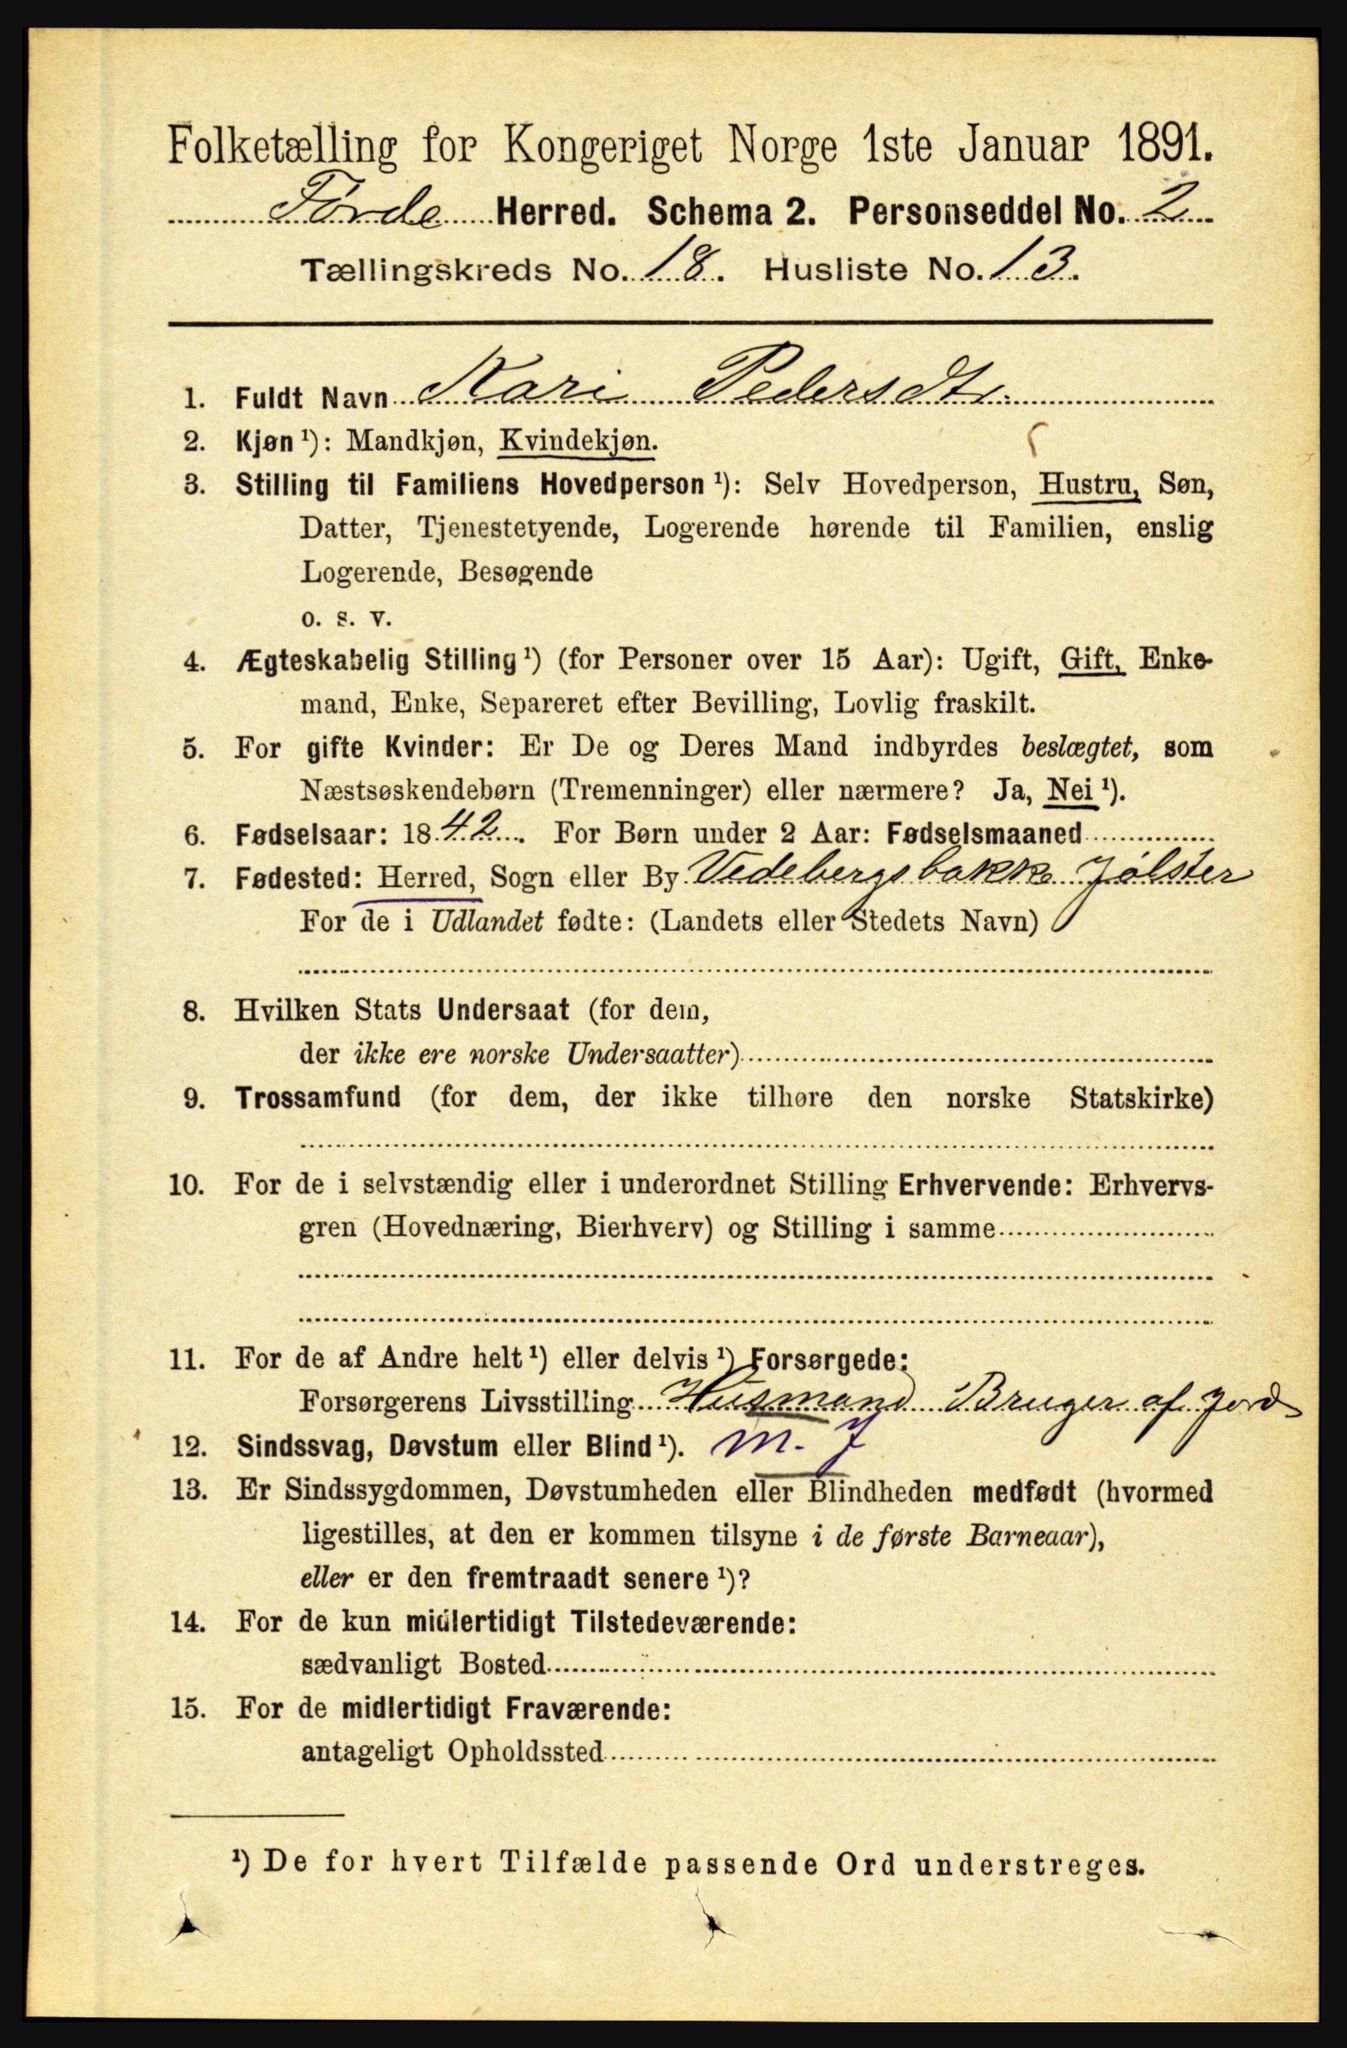 Folketælling for Kongeriget Norge 1ste Januar 1891.
Førde Herred. Schema 2. Personseddel No. 2
Tællingskreds No. 18. Husliste No. 13.
1. Fuldt Navn Kari Pedersdtr.
2. Kjøn ¹): Mandkjøn, Kvindekjøn.
3. Stilling til Familiens Hovedperson ¹): Selv Hovedperson, Hustru, Søn,
Datter, Tjenestetyende, Logerende hørende til Familien, enslig
Logerende, Besøgende
o. s. v.
4. Ægteskabelig Stilling ¹) (for Personer over 15 Aar): Ugift, Gift, Enke-
mand, Enke, Separeret efter Bevilling, Lovlig fraskilt.
5. For gifte Kvinder: Er De og Deres Mand indbyrdes beslægtet, som
Næstsøskendebørn (Tremenninger) eller nærmere? Ja, Nei ¹).
6. Fødselsaar: 1842. For Børn under 2 Aar: Fødselsmaaned
7. Fødested: Herred, Sogn eller By Vedebergsbakke Jølster
For de i Udlandet fødte: (Landets eller Stedets Navn)
8. Hvilken Stats Undersaat (for dem,
der ikke ere norske Undersaatter)
9. Trossamfund (for dem, der ikke tilhøre den norske Statskirke)
10. For de i selvstændig eller i underordnet Stilling Erhvervende: Erhvervs-
gren (Hovednæring, Bierhverv) og Stilling i samme
11. For de af Andre helt ¹) eller delvis ¹) Forsørgede:
Forsørgerens Livsstilling Husmand Bruger af Jord
12. Sindssvag, Døvstum eller Blind ¹). m. J
13. Er Sindssygdommen, Døvstumheden eller Blindheden medfødt (hvormed
ligestilles, at den er kommen tilsyne i de første Barneaar),
eller er den fremtraadt senere ¹)?
14. For de kun midlertidigt Tilstedeværende:
sædvanligt Bosted
15. For de midlertidigt Fraværende:
antageligt Opholdssted
¹) De for hvert Tilfælde passende Ord understreges.